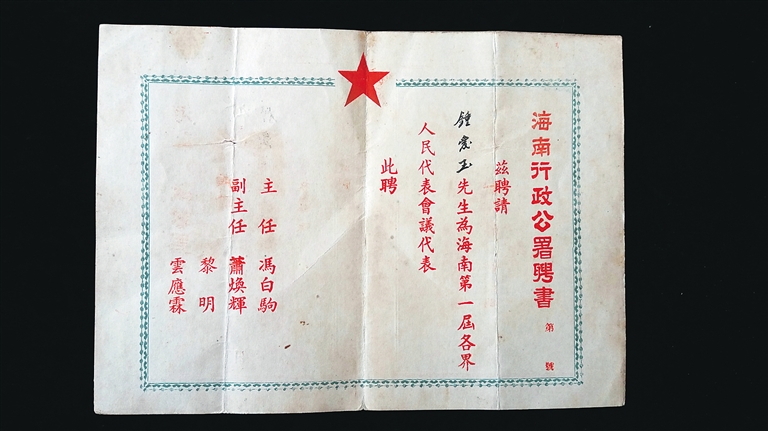 海南行政公署聘書
第 號
茲聘請
鍾愛玉先生為海南第一屆各界
人民代表會議代表
此聘
主任 馮白駒
副主任 蕭煥輝
黎明
雲應霖